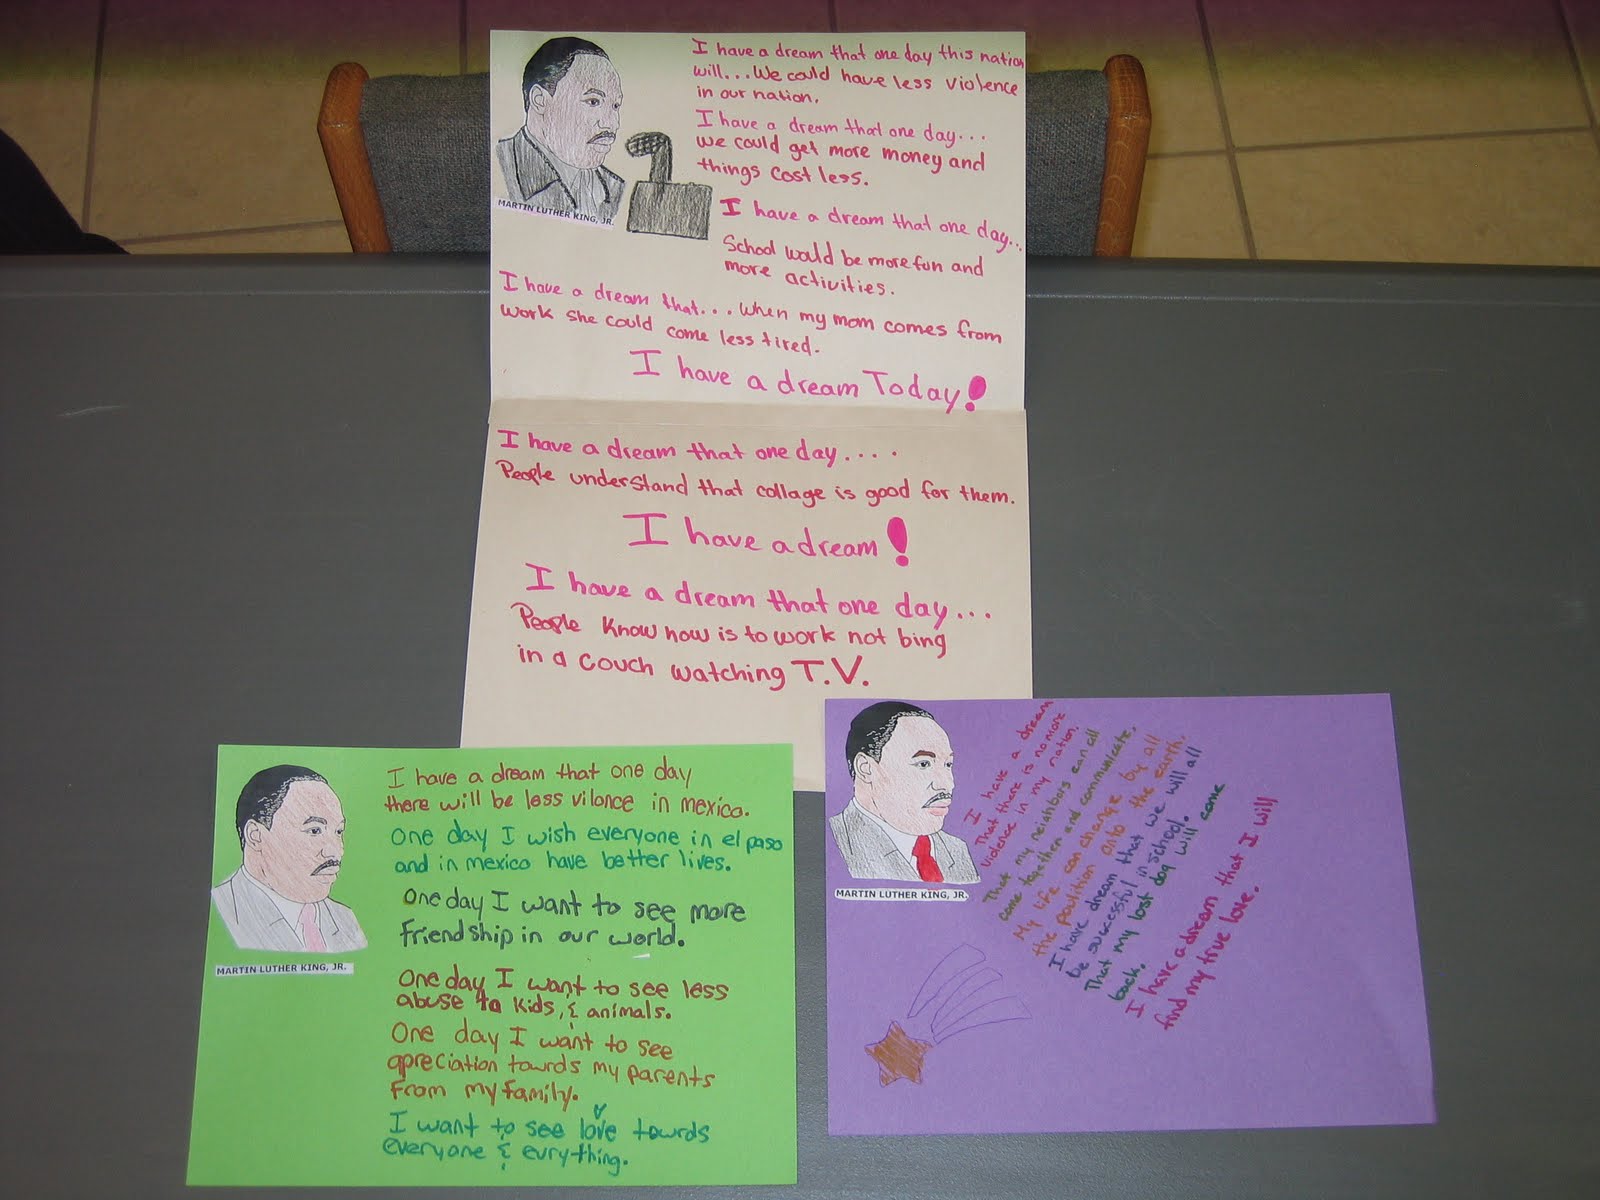 I have a dream that one day this nation
will...We could have less violence
in our nation.
I have a dream that one day...
We could get more money and
things cost less.
MARTIN LUTHER KING, JR.
I have a dream that one day...
School would be more fun and
more activities.
I have a dream that...when my mom comes from
work she could come less tired.
I have a dream Today!
I have a dream that one day....
People understand that collage is good for them.
I have a dream!
I have a dream that one day...
People know how is to work not bing
in a couch watching T.V.
I have a dream that one day
there will be less vilonce in mexico.
One day I wish everyone in el paso
and in mexico have better lives.
One day I want to see more
friendship in our world.
MARTIN LUTHER KING, JR.
One day I want to see less
abuse to kids, & animals.
One day I want to see
apreciation towrds my parents
from my family.
I want to see love towrds
everyone & evrything.
I have a dream
That there is no more
violence in my nation.
That my neighbors can all
come together and communicate.
My life can change by all
the poulition onto the earth.
I have dream that we will all
be successful in school.
That my lost dog will come
back.
I have a dream that I will
find my true love.
MARTIN LUTHER KING, JR.